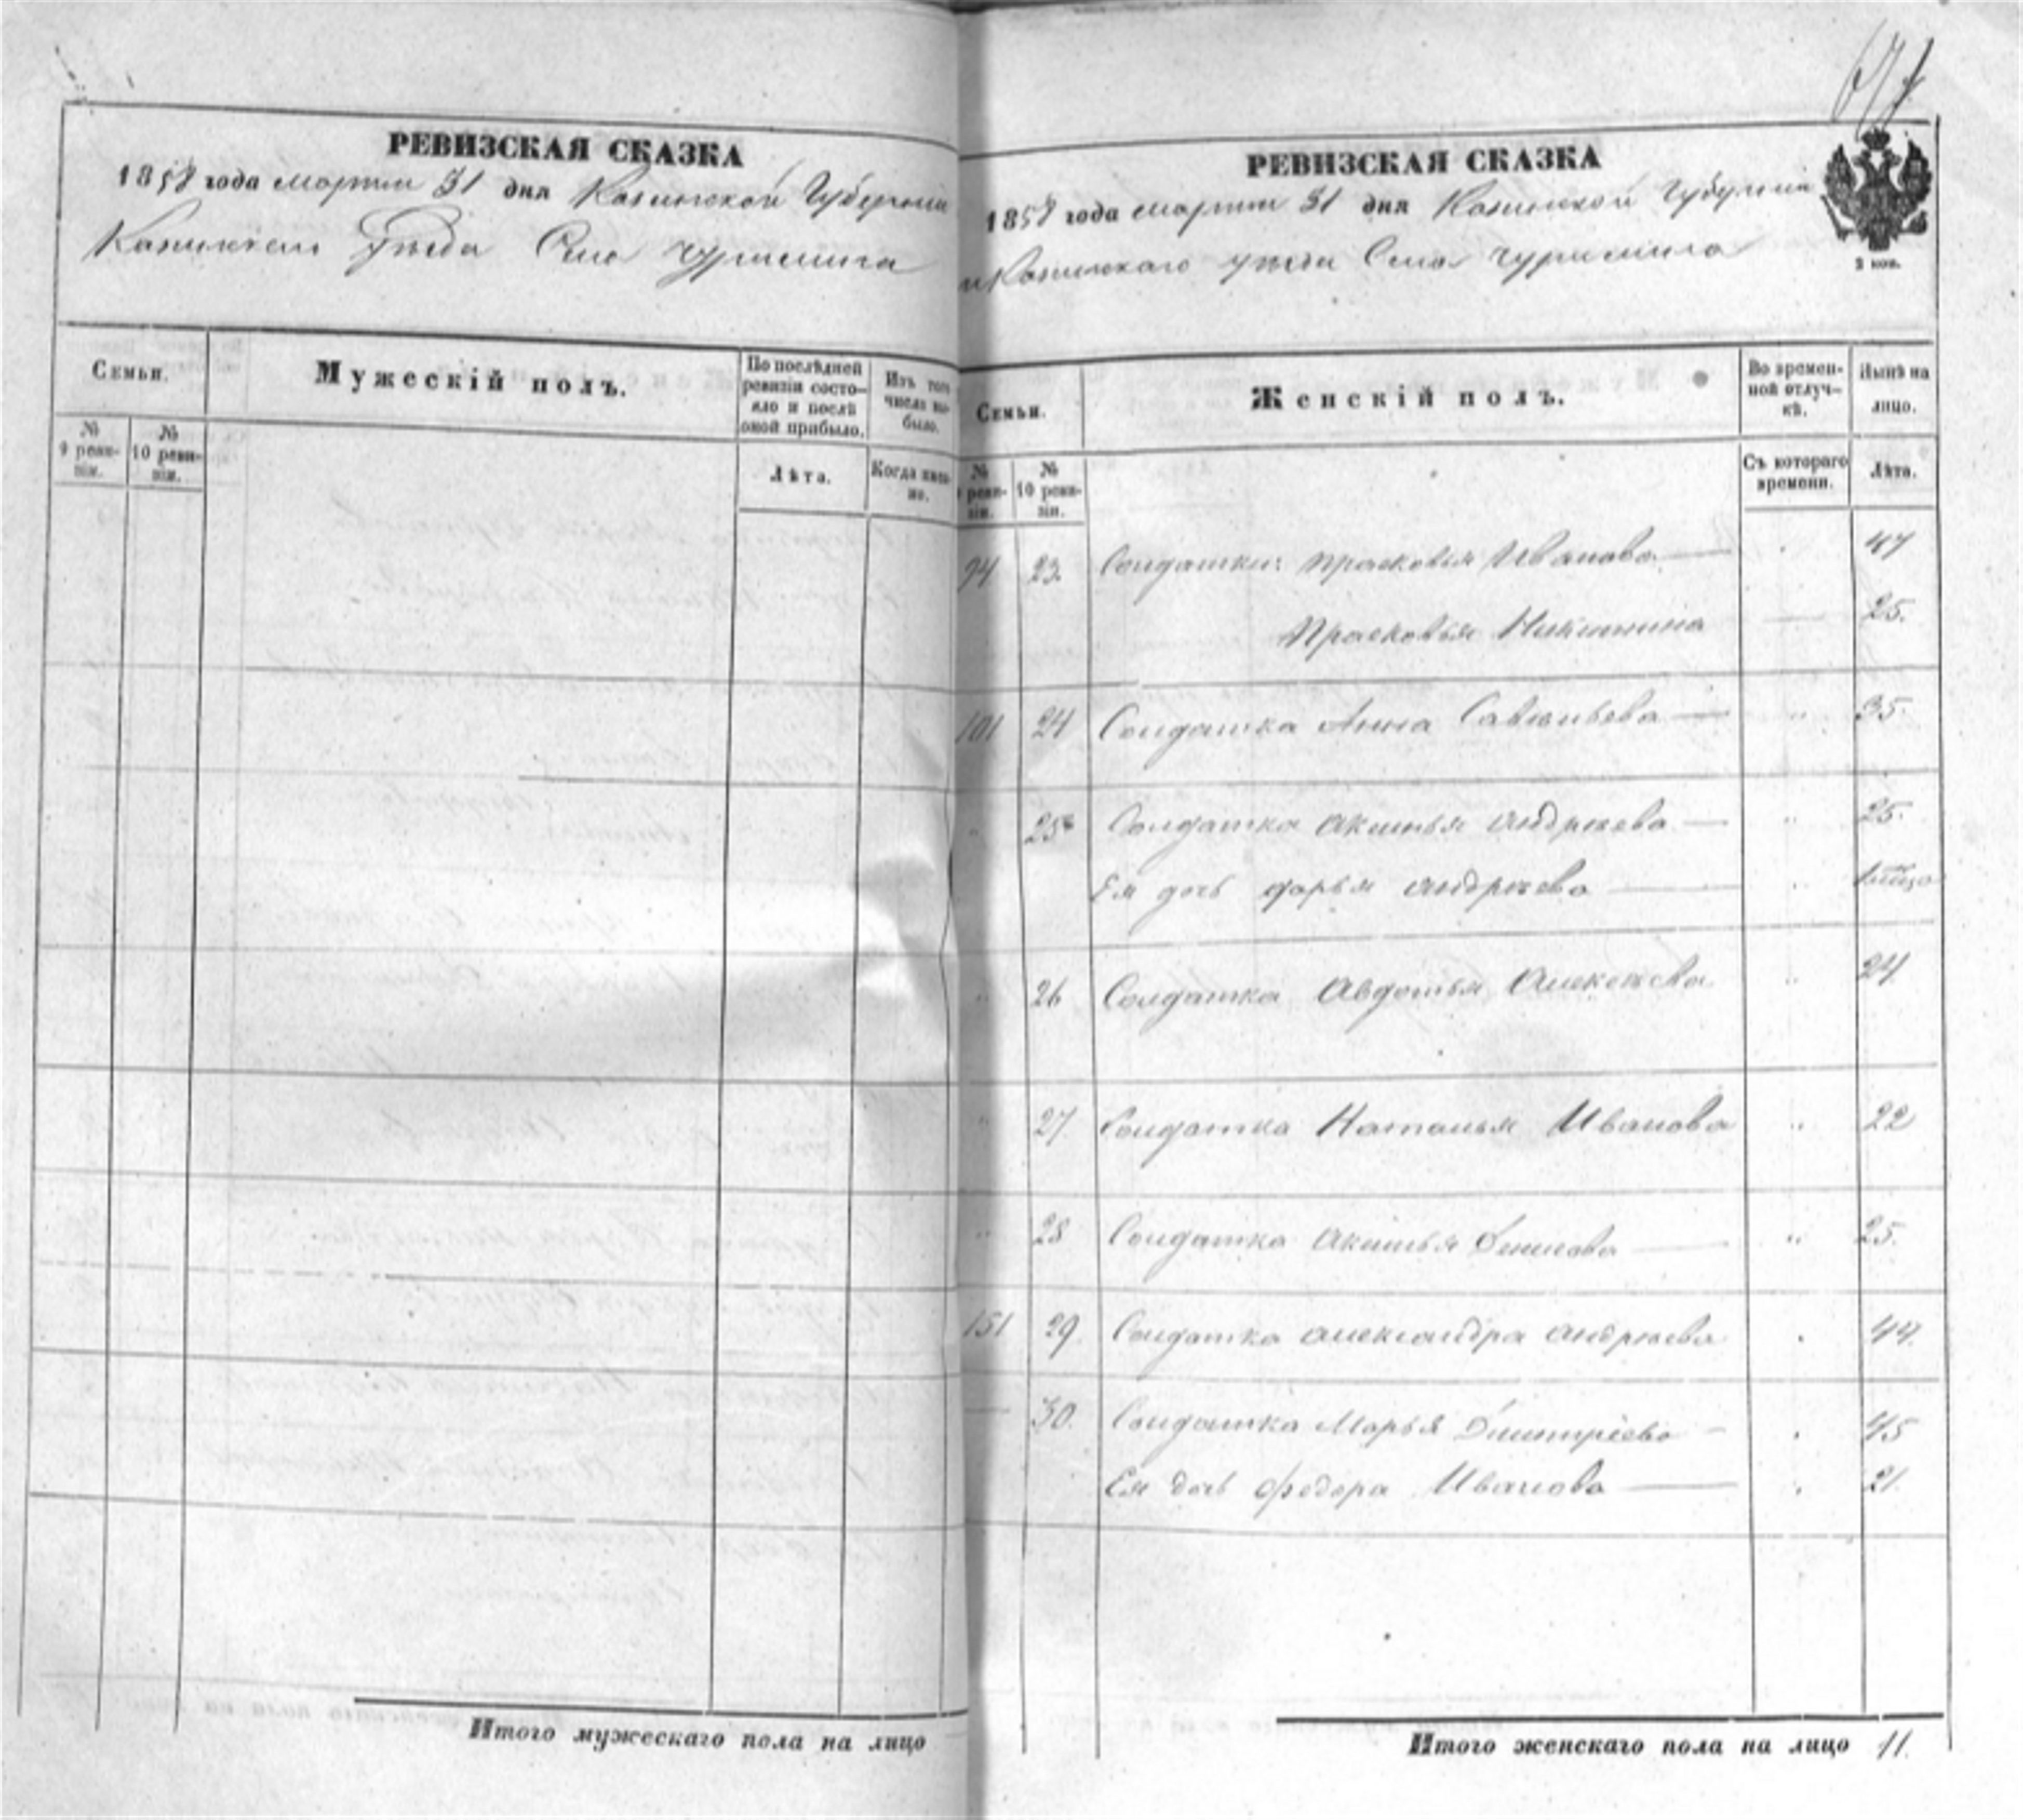 РЕВИЗСКАЯ СКАЗКА
1858 года марта 31 дня Казанской Губерніи
Уѣзда Село Чурилина
Семьи.
Мужескій полъ.
По послѣдней ревизіи состояло и послѣ оной прибыло.
Изъ того числа выбыло.
№ 9 ревизіи.
№ 10 ревизіи.
Лѣта.
Когда именно.
Итого мужескаго пола на лицо
РЕВИЗСКАЯ СКАЗКА
1858 года марта 31 дня Казанской Губерніи
Казанскаго уѣзда Села Чурилина
2 коп.
Семьи.
Женскій полъ.
Во временной отлучкѣ.
Нынѣ на лицо.
№ 9 ревизіи.
№ 10 ревизіи.
Съ котораго времени.
Лѣта.
94 23. Солдатки: Прасковья Иванова 47
Прасковья Никитина 25.
101 24 Солдатка Анна Савельева 35.
" 25 Солдатка Акинья Андреева " 25.
Ея дочь Дарья Андреева
" 26 Солдатка Авдотья Алексеева " 24
" 27. Солдатка Наталья Иванова " 22
" 28 Солдатка Акинья " 25.
151 29. Солдатка Александра Андреева 44.
30. Солдатка Марья Дмитріева 45
Ея дочь Федора Иванова 21.
Итого женскаго пола на лицо 11.